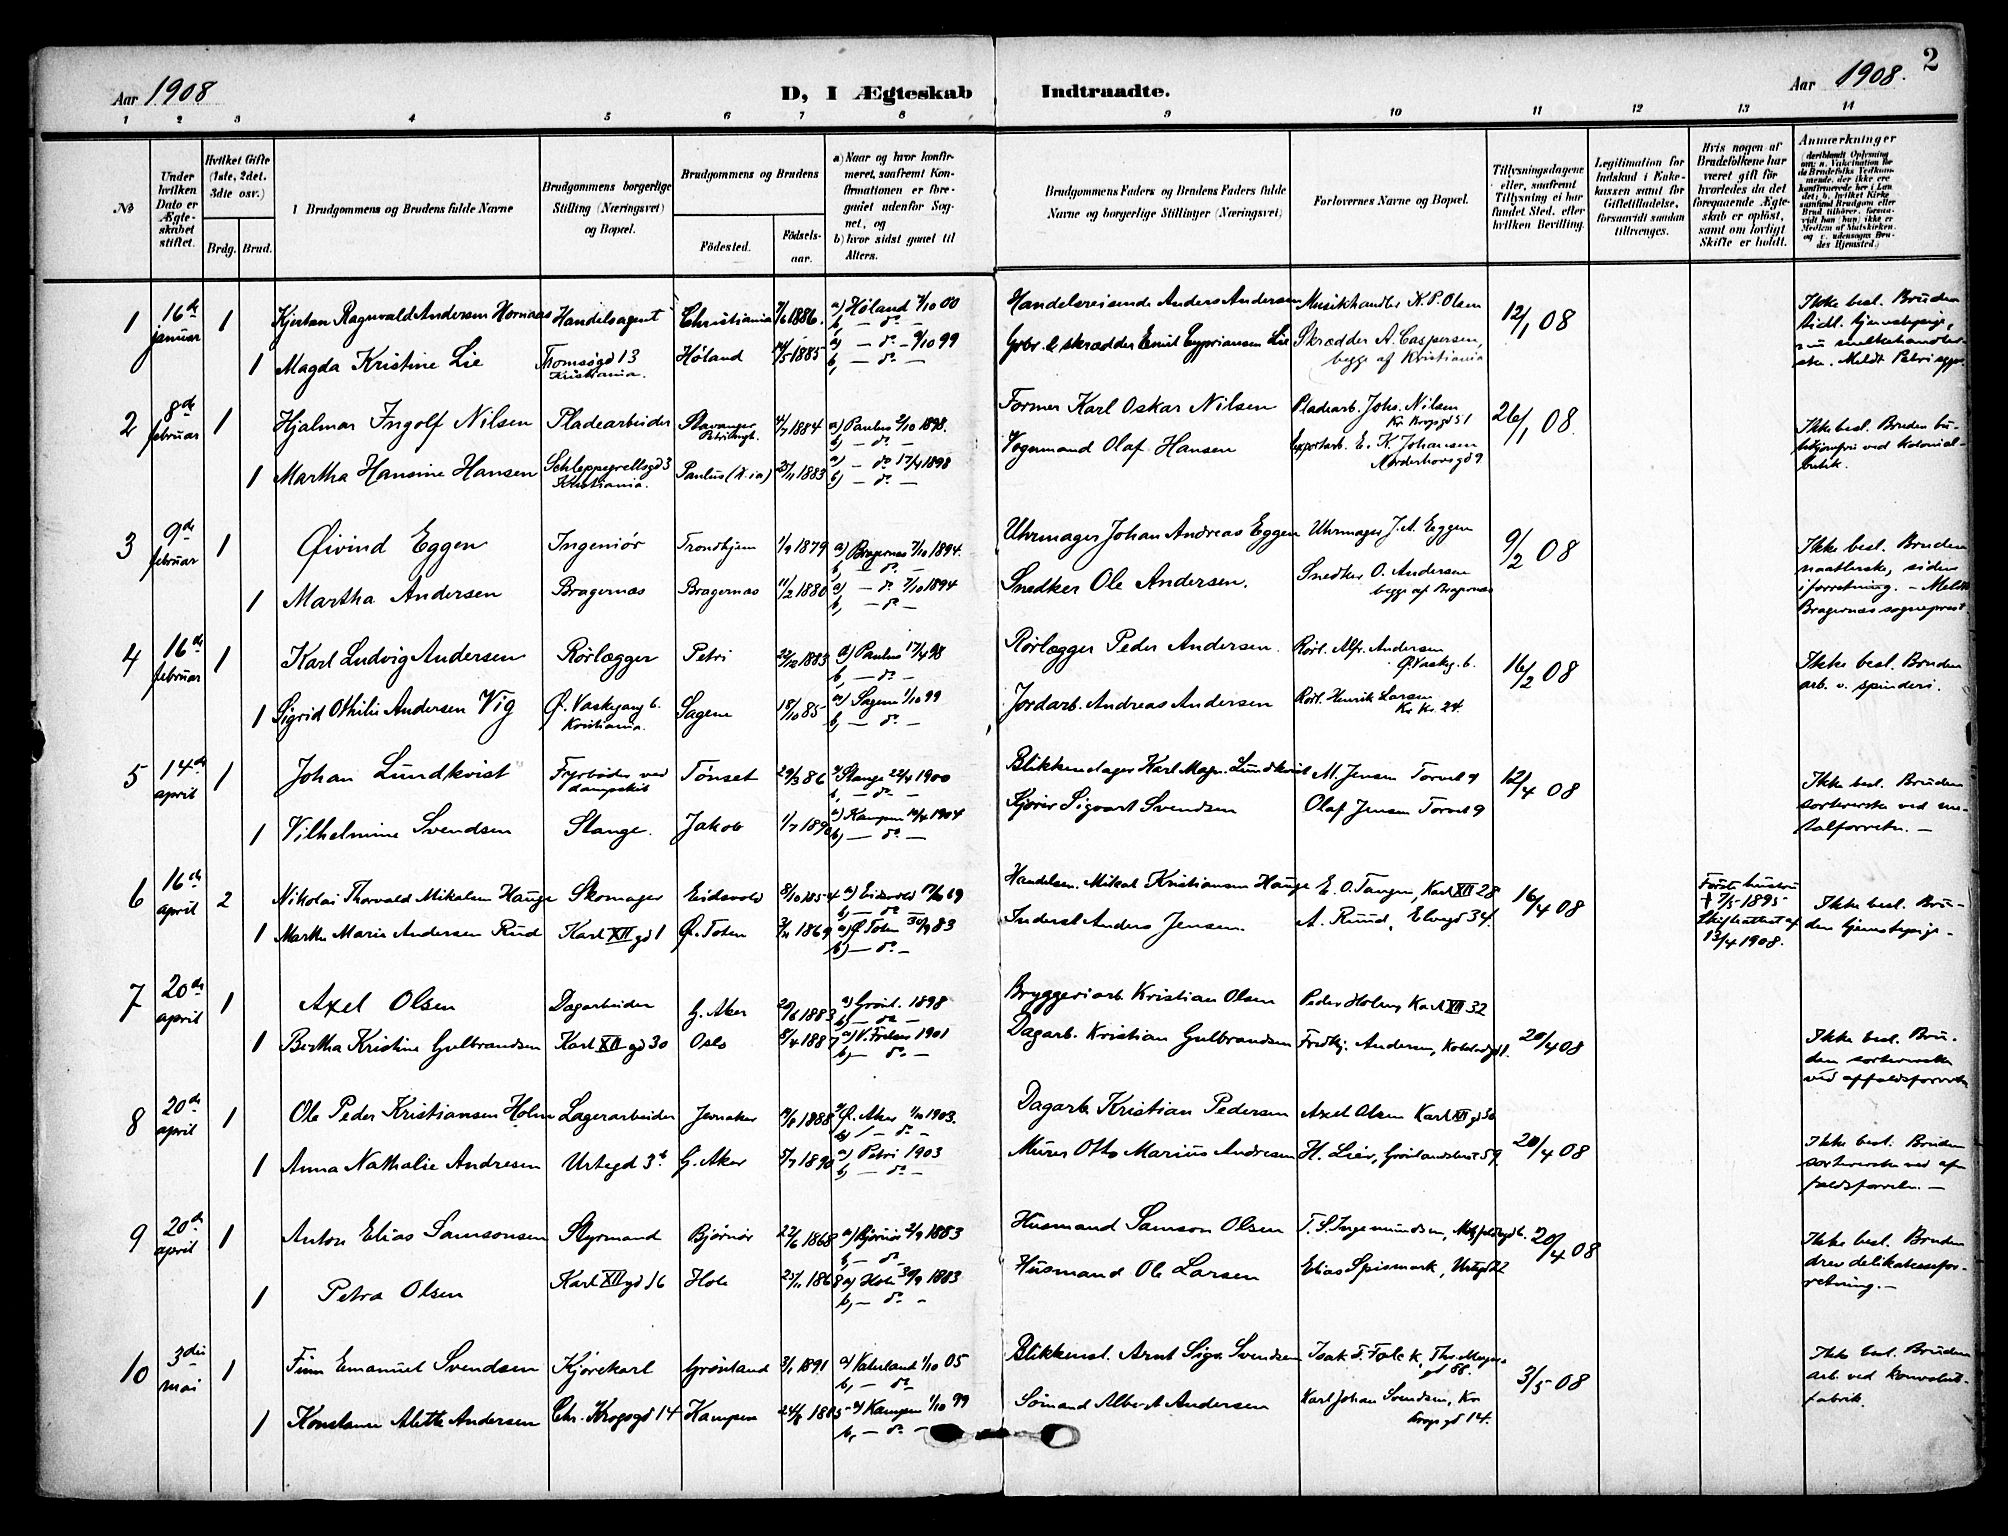 2
Aar 1908
D, I Ægteskab Indtraadte.
Aar 1908.
1 2 3 4 5 6 7 8 9 10 11 12 13 14
No
Under hvilken Dato er Ægteskabet stiftet.
Hvilket Gifte (1ste, 2det, 3die osv.)
Brdg. Brud.
Brudgommens og Brudens fulde Navne
Brudgommens borgerlige Stilling (Næringsvei) og Bopæl.
Brudgommens og Brudens
Fødested. Fødselsaar.
a) Naar og hvor konfirmeret, saafremt Konfirmationen er foregaaet udenfor Sognet, og
b) hvor sidst gaaet til Alters.
Brudgommens Faders og Brudens Faders fulde Navne og borgerlige Stillinger (Næringsvei)
Forlovernes Navne og Bopæl.
Tillysningsdagene eller, saafremt Tillysning ei har fundet Sted, efter hvilken Bevilling.
Legitimation for Indskud i Enkekassen samt for Giftetilladelse, forsaavidt saadan tiltrænges.
Hvis nogen af Brudefolkene har været gift før hvorledes da det foregaaende Ægteskab er opløst, samt om lovligt Skifte er holdt.
Anmærkninger
1 16de januar 1 Kjestan Ragnvald Andersen Hornaas Handelsagent Christiania 7/6 1886. a) Høland 7/10 00 Handelsreisende Anders Andersen Musikhandler K. P. Olsen 12/1 08 Ikke besl. Bruden
b, — do — tidl. tjenestepige,
1 Magda Kristine Lie Tromsøgd 13 Kristiania. Høland 14/5 1885 a) — do — 9/10 99 skrædder Emil Cypriansen Lie Skrædder A. Caspersen, begge af Kristiania
b, — do —
2 8de februar 1 Hjalmar Ingolf Nilsen Pladearbeider Stavanger 4/7 1884 a) Paulus 2/10 1898. Former Karl Oskar Nilsen Pladearb. Johs. Nilsen Kr. Krogsgd 51 26/1 08. Ikke besl. Bruden
b) — do —
1 Martha Hansine Hansen Schleppegrellsgd 3 Kristiania. Paulus (K.ia) 25/11 1883 a) — do 17/4 1898 Vognmand Olaf Hansen E. K. Johansen Norderhovsgd 9 ved Kolonialbutik.
b) — do —
3 9de februar 1 Øivind Eggen Ingeniør Trondhjem 1/9 1879 a) Bragernæs 7/10 1894. Uhrmager Johan Andreas Eggen Uhrmager J. A. Eggen 9/2 08 Ikke besl. Bruden
b, — do —
1 Martha Andersen Bragernæs Bragernæs 11/2 1880 a) — do 7/10 1894 Snedker Ole Andersen. Snedker O. Andersen begge af Bragernæs i forretning. — Meldt Bragernæs sogneprest
b, — do —
4 16de februar 1 Karl Ludvig Andersen Rørlægger Petri 22/12 1883 a) Paulus 17/4 98 Rørlægger Peder Andersen. Rørl. Alfr. Andersen Ø. Vaskeg. 6. 16/2 08 Ikke besl. Bruden
b, — do — arb. v. spinderi.
1 Sigrid Othilie Andersen Vig Ø. Vaskegang 6. Kristiania Sagene 18/10 85 a) Sagene 1/10 99 Jordarb. Andreas Andersen Rørl. Henrik Larsen Kr. Kr. 24.
b, — do —
5 14de april 1 Johan Lundkvist Fyrbøder ved dampskib Tønset 29/3 86 a) Stange 22/4 1900 Blikkenslager Karl Magn. Lundkvist M. Jensen Torvet 9 12/4 08 Ikke besl. Bruden
b, — do —
1 Vilhelmine Svendsen Stange. Jakob 1/7 1890 a) Kampen 10/4 1904 Kjører Sigvart Svendsen Olaf Jensen Torvet 9 sorterske ved metalforretn. —
b) — do —
6 16de april 2 Nikolai Thorvald Mikalsen Hauge Skomager Eidsvold 8/10 1854 a) Eidsvold 17/10 69 Handelsm. Mikal Kristiansen Hauge E. O. Tangen, Karl XII 28 16/4 08 Første hustru † 7/5 1895 Skifteattest af 13/4 1908. Ikke besl. Bruden tjenestepige.
b, — do —
1 Marthe Marie Andersen Rud Karl XII gd 1 Ø. Toten 3/11 1869 a) Ø. Toten 30/9 83 Inderst Anders Jensen. A. Ruud, Elvegd 34.
b) — do —
7 20de april 1 Axel Olsen Dagarbeider G. Aker 20/6 1883 a) Grønl. 1898 Bryggeriarb. Kristian Olsen Peder Holm, Karl XII 32
b) — do —
1 Bertha Kristine Gulbrandsen Karl XII gd 30 Oslo 8/4 1887 a) 1901 Dagarb. Kristian Gulbrandsen Fredkj. Andersen, 20/4 08 Ikke besl. Bruden sorterske ved affaldsforretn
b, — do —
8 20de april 1 Ole Peder Kristiansen Holm Lagerarbeider Jevnaker 1888 a) Ø. Aker 1/10 1903. Dagarb. Kristian Pedersen Axel Olsen Karl XII gd 30
b) — do —
1 Anna Nathalie Andresen Urtegd 3b G. Aker 5/7 1890 a) Petri 1903 Murer Otto Marius Andresen H. Lier, Grønlandsleret 59. 20/4 08 Ikke besl. Bruden sorterske ved affaldsforretn. —
b, — do —
9 20de april 1 Anton Elias Samsonsen Styrmand Bjørnør 22/6 1868 a) Bjørnør 2/9 1883 Husmand Samson Olsen T. S. Ingemundsen, 20/4 08 Ikke besl. Bruden drev delikatesseforretning. —
b, — do —
1 Petra Olsen Karl XII gd 16 Hole 25/11 1868 a) Hole 30/9 1883 Husmand Ole Larsen Elias Spismark, Urtegd 22
b, — do —
10 3die mai 1 Finn Emanuel Svendsen Kjørekarl Grønland 3/1 1891 a) Vaterland 1/10 05 Blikkensl. Arnt Sigv. Svendsen Isak F. Falck, Thv. Meyersgd 88. 3/5 08 Ikke besl. Bruden arb. ved konvolutfabrik.
b, — do —
1 Konstance Alette Andersen Chr. Krogsgd 14 Kampen 24/8 1885 a) Kampen 1/10 99 Sømand Albert Andersen Karl Johan Svendsen, Kr Krogs gd 14.
b, — do —